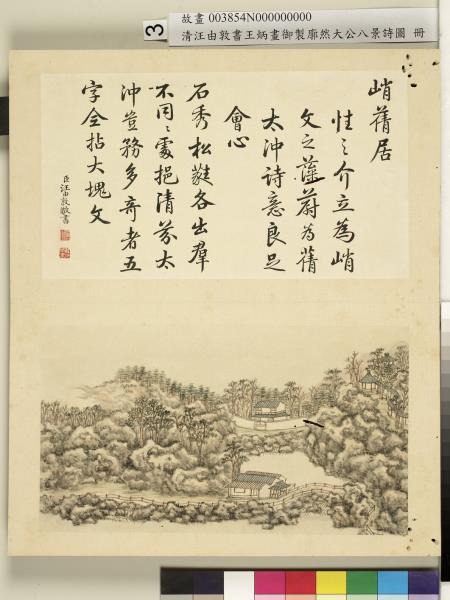 故畫 003854N000000000
清汪由敦書王炳畫御製廓然大公八景詩圖 冊
3
峭蒨居
性之介立為峭
文之藻蔚為蒨
太沖詩意良足
會心
石秀松蕤各出羣
不同同處挹清芬太
沖豈務多奇者五
字全拈大塊文
臣汪由敦敬書